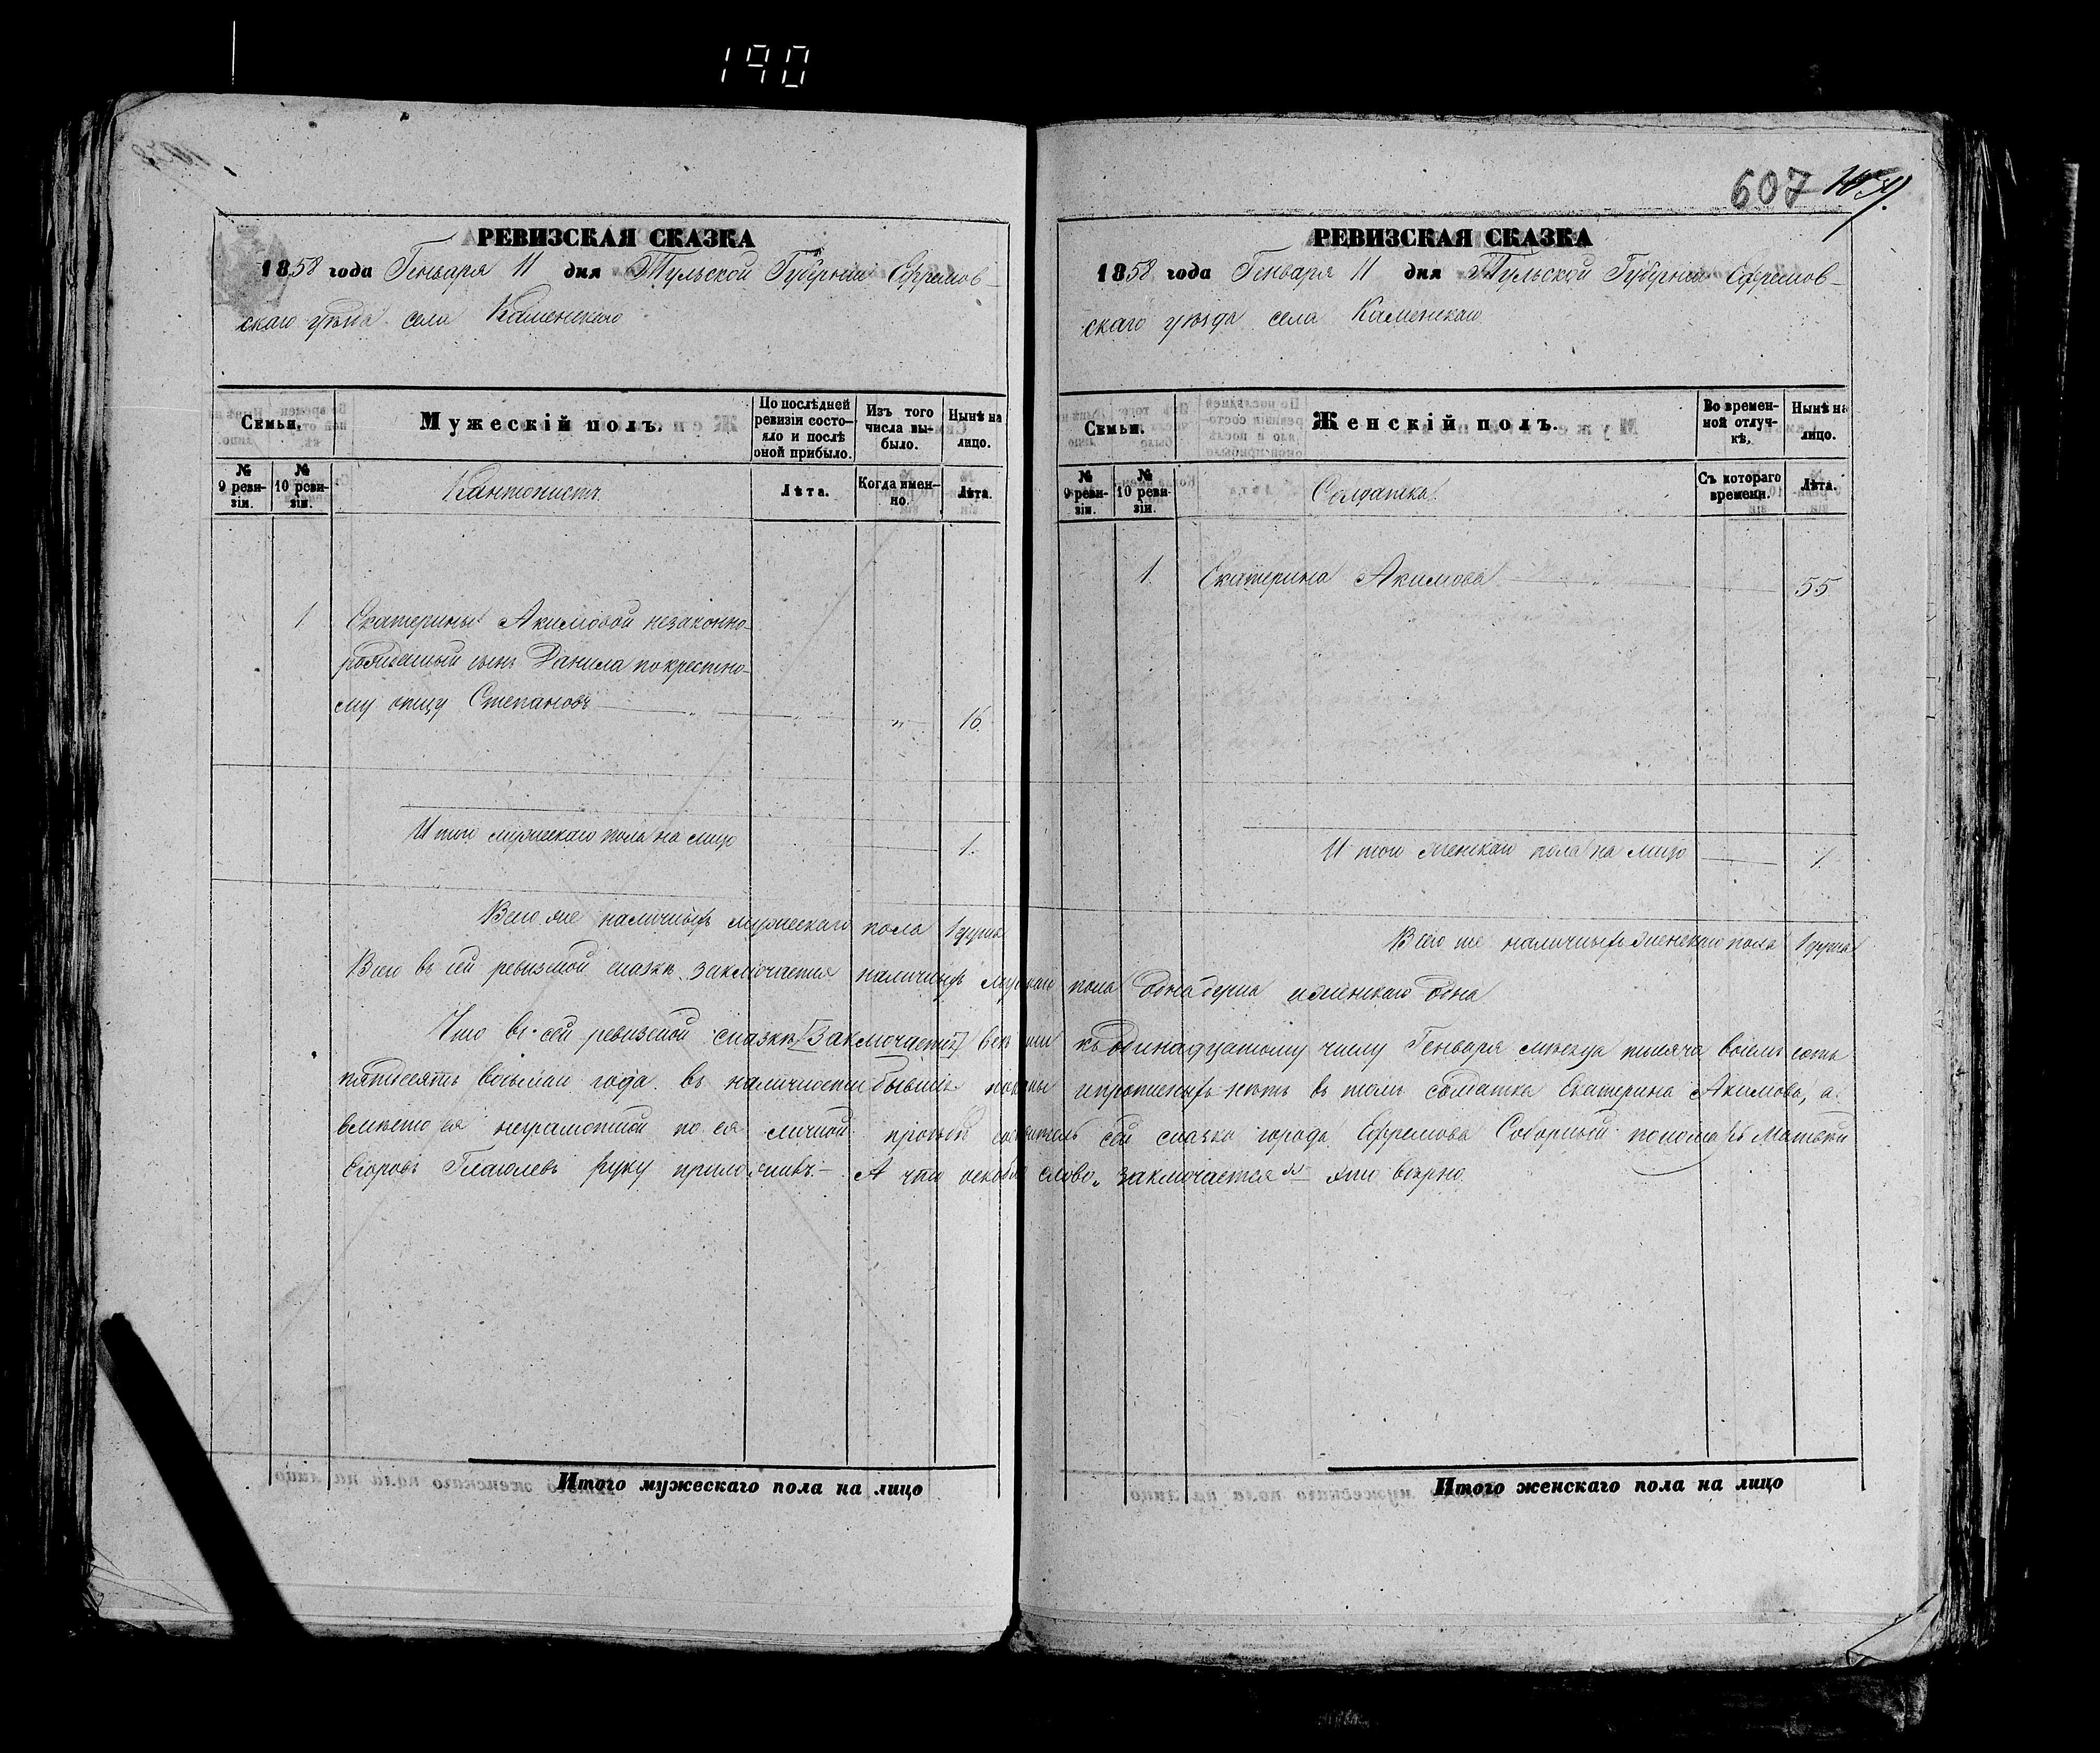 190
607
РЕВИЗСКАЯ СКАЗКА
1858 года Генваря 11 дня Тульской Губерніи Ефремов-
скаго уѣзда села Каменскаго
Семьи.
Мужескій полъ.
По послѣдней ревизіи состо-яло и послѣ оной прибыло.
Изъ того числа вы-было.
Нынѣ на лицо.
№ 9 реви-зіи.
№ 10 реви-зіи.
Кантонистъ
Лѣта.
Когда имен-но.
Лѣта.
1 Екатерины Акимовой незаконно-
рожденный сынъ Данила по крестно-
му отцу Степановъ 16
Итого мужескаго пола на лицо 1.
Всего же наличныхъ мужескаго пола 1 душа
РЕВИЗСКАЯ СКАЗКА
1858 года Генваря 11 дня Тульской Губерніи Ефремов-
скаго уѣзда села Каменскаго
Семьи.
Женскій полъ.
Во времен-ной отлуч-кѣ.
Нынѣ на лицо.
№ 9 реви-зіи.
№ 10 реви-зіи.
Солдатка.
Съ котораго времени.
Лѣта.
1. Екатерина Акимова 55
Итого женскаго пола на лицо 1.
Всего же наличныхъ женскаго пола 1 душа
Всего въ сей ревизской сказкѣ заключается наличныхъ мужскаго пола одна душа и женскаго одна
Что въ сей ревизской сказкѣ [заключается] всѣ къ одинадцатому числу Генваря мѣсяца тысяча восемь сотъ
пятдесятъ восьмаго года въ наличности бывшіе показаны и прописныхъ нѣтъ въ томъ солдатка Екатерина Акимова, а
вмѣсто ея неграмотной по ея личной прозьбѣ сей сказки города Ефремова Соборный пономарь Матвѣй
Егоровъ Глаголевъ руку приложилъ. — А что слово „заключается" — это вѣрно.
Итого мужескаго пола на лицо
Итого женскаго пола на лицо